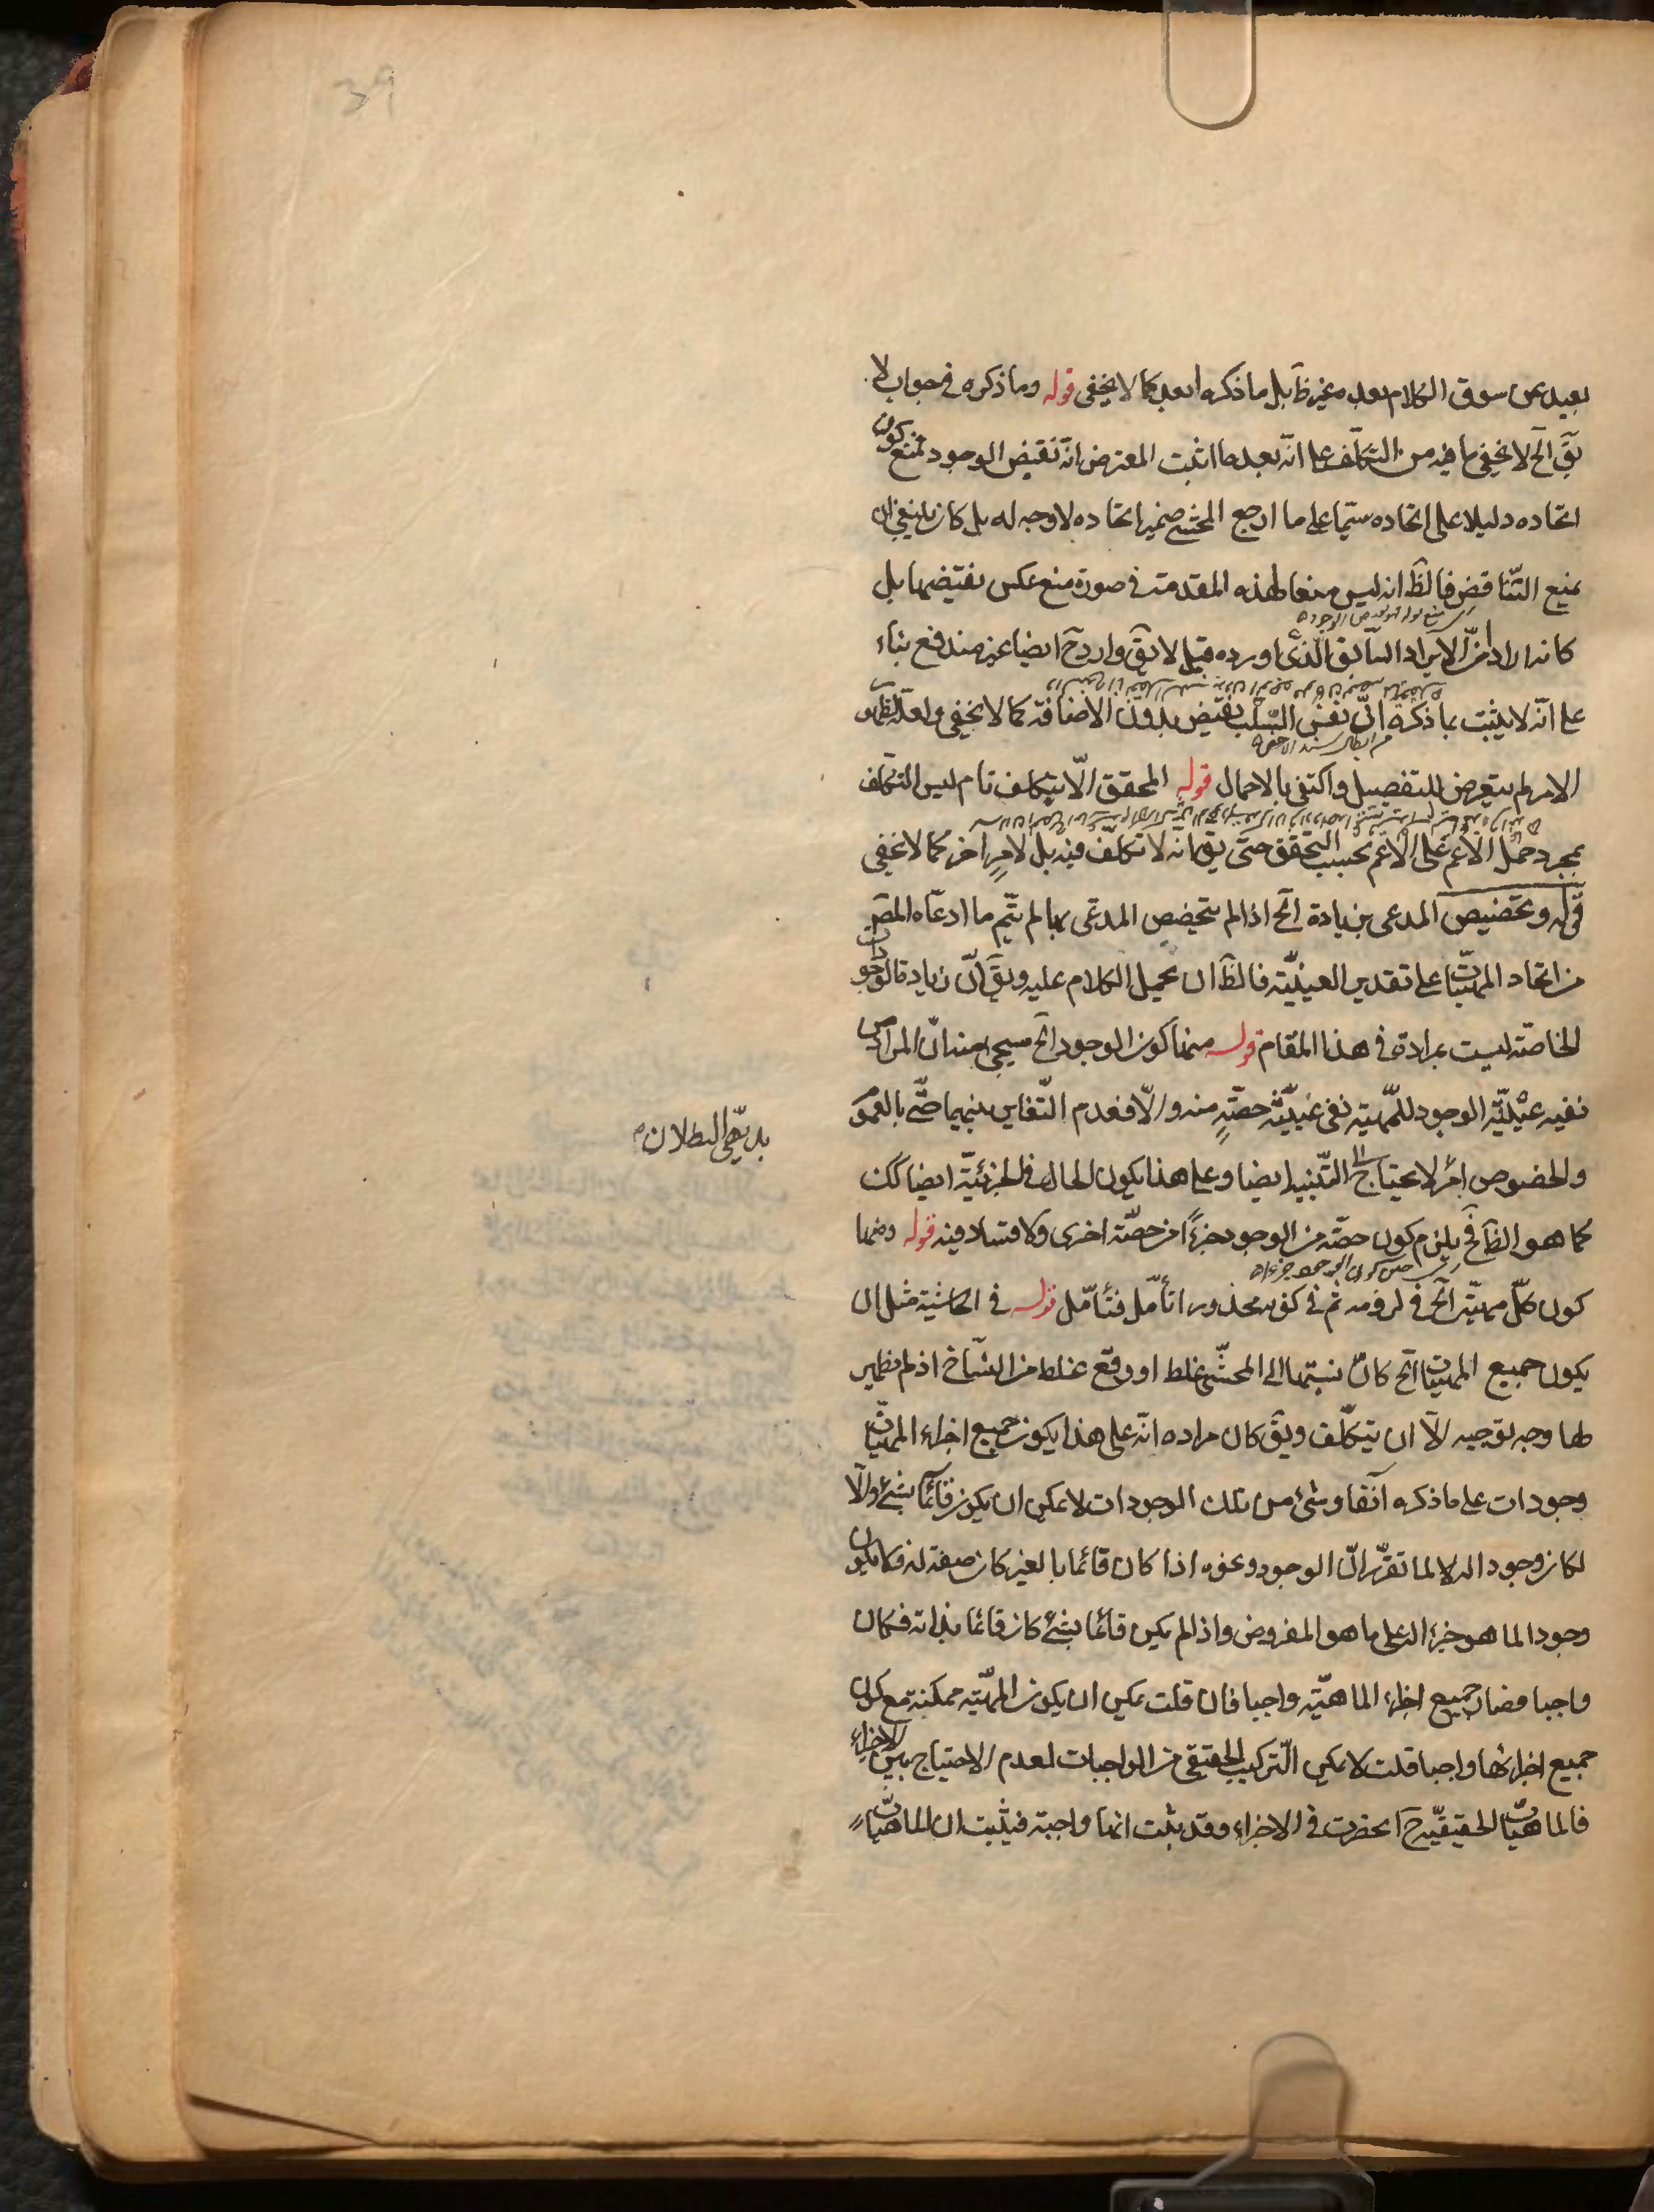 39
بعيد عن سوق الكلام بعده غير ظ بل ما ذكره ابعد كما لا يخفى قوله وما ذكره فى جواب لا
يق الخ لا يخفى ما فيه من التكلف على انه بعد ما اثبت المعترض انه نقيض الوجود فمنع كون
اتحاده دليلا على اتحاده سيما على ما ارجع المحشى ضمير اتحاده لا وجه له بل كان ينبغى ان
يمنع التناقض فالظ انه ليس منعا لهذه المقدمة فى صورة منع عكس نقيضها بل
كانه اراد ان الايراد السابق الذى اورده قبيل لا يق وارد ح ايضا غير مندفع بناء
على انه لا يثبت بما ذكره ان نفس السلب نقيض بدون الاضافة كما لا يخفى ولعله لظهور
الامر لم يتعرض للتفصيل واكتفى بالاجمال قوله المحقق الا بتكلف تام ليس التكلف
بمجرد حمل الاعم على الاعم بحسب التحقق حتى يق انه لا تكلف فيه بل لامر اخر كما لا يخفى
قوله وتخصيص المدعى بزيادة الخ اذا لم يتخصص المدعى بها لم يتم ما ادعاه المص
من اتحاد المهيات على تقدير العينية فالظ ان يحمل الكلام عليه ويق ان زيادة الوجودات
الخاصة ليست بمرادة فى هذا المقام قوله منها كون الوجود الخ سيجىء منه ان المراد من
نفيه عينية الوجود للمهية نفى عينية حصة منه والا فعدم التغاير بينهما حتى بالعموم
والخصوص امر لا يحتاج الى التنبيه ايضا وعلى هذا يكون الحال فى الجزئية ايضا كك
بديهى البطلان م
كما هو الظ فح يلزم كون حصة من الوجود جزءا من حصة اخرى ولا فساد فيه قوله ومنها
كون كل مهية الخ فى لزومه ثم فى كونه محذورا تأمل فتأمل قوله فى الحاشية مثل ان
يكون جميع المهيات الخ كان نسبتها الى المحشى غلط او وقع غلط من النساخ اذ لم يظهر
لها وجه توجيه الا ان يتكلف ويق كان مراده انه على هذا يكون جميع اجزاء المهيات
وجودات على ما ذكره آنفا وشىء من تلك الوجودات لا يمكن ان يكون قائما بشىء والا
لكان وجودا له لا لما تقرر ان الوجود ونحوه اذا كان قائما بالغير كان صفة له فلا يكون
وجودا لما هو جزء له على ما هو المفروض واذا لم يكن قائما بشىء كان قائما بذاته فكان
واجبا فصار جميع اجزاء الماهية واجبا فان قلت يمكن ان يكون المهية ممكنة مع كون
جميع اجزائها واجبا قلت لا يمكن التركيب الحقيقى من الواجبات لعدم الاحتياج بين الاجزاء
فالماهيات الحقيقية ح انحصرت فى الاجزاء وقد ثبت انها واجبة فيثبت ان الماهيات